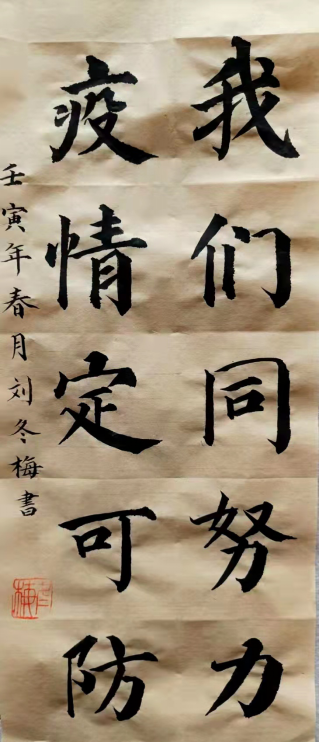 我们同努力
疫情定可防
壬寅年春月刘冬梅書